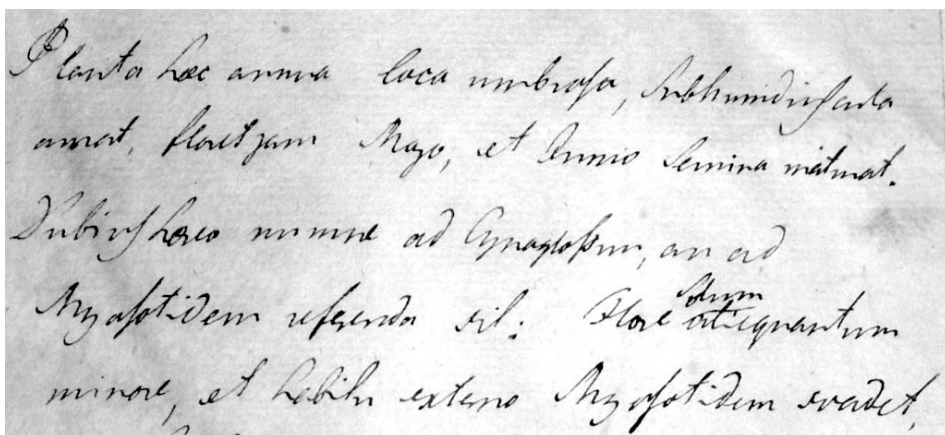 Planta haec annua loca umbrosa, subhumidiuscula
amat, floret jam Majo, et Junio semina maturat.
Dubius haereo numne ad Cynoglossum, an ad
Myosotidem referenda sit: Flore
minore, et habitu externo Myosotidem svadet,